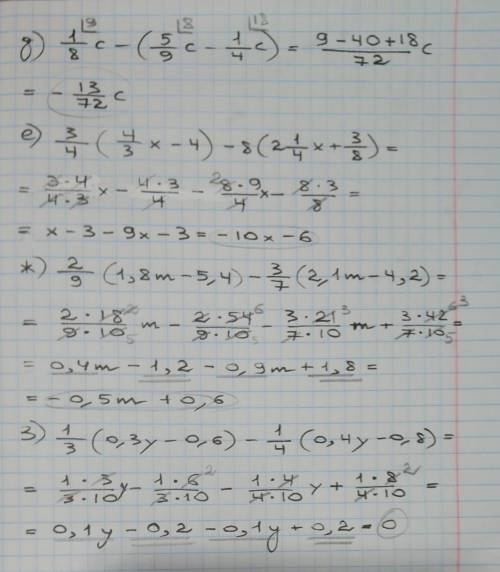 g) 1/8 c⌋9 − (5/9 c⌋8 − 1/4 c⌋18) = (9 − 40 + 18)/72 c
= − 13/72 c
е) 3/4 (4/3 x − 4) − 8(2 1/4 x + 3/8) =
= (3·4)/(4·3) x − (4·3)/4 − (²8·9)/4 x − (8·3)/8 =
= x − 3 − 9x − 3 = −10x − 6
ж) 2/9 (1,8m − 5,4) − 3/7 (2,1m − 4,2) =
= (2·18²)/(9·10₅) m − (2·54⁶)/(9·10₅) − (3·21³)/(7·10) m + (3·42⁶ ³)/(7·10₅) =
= 0,4m − 1,2 − 0,9m + 1,8 =
= −0,5m + 0,6
з) 1/3 (0,3y − 0,6) − 1/4 (0,4y − 0,8) =
= (1·3)/(3·10) y − (1·6²)/(3·10) − (1·4)/(4·10) y + (1·8²)/(4·10) =
= 0,1y − 0,2 − 0,1y + 0,2 = 0